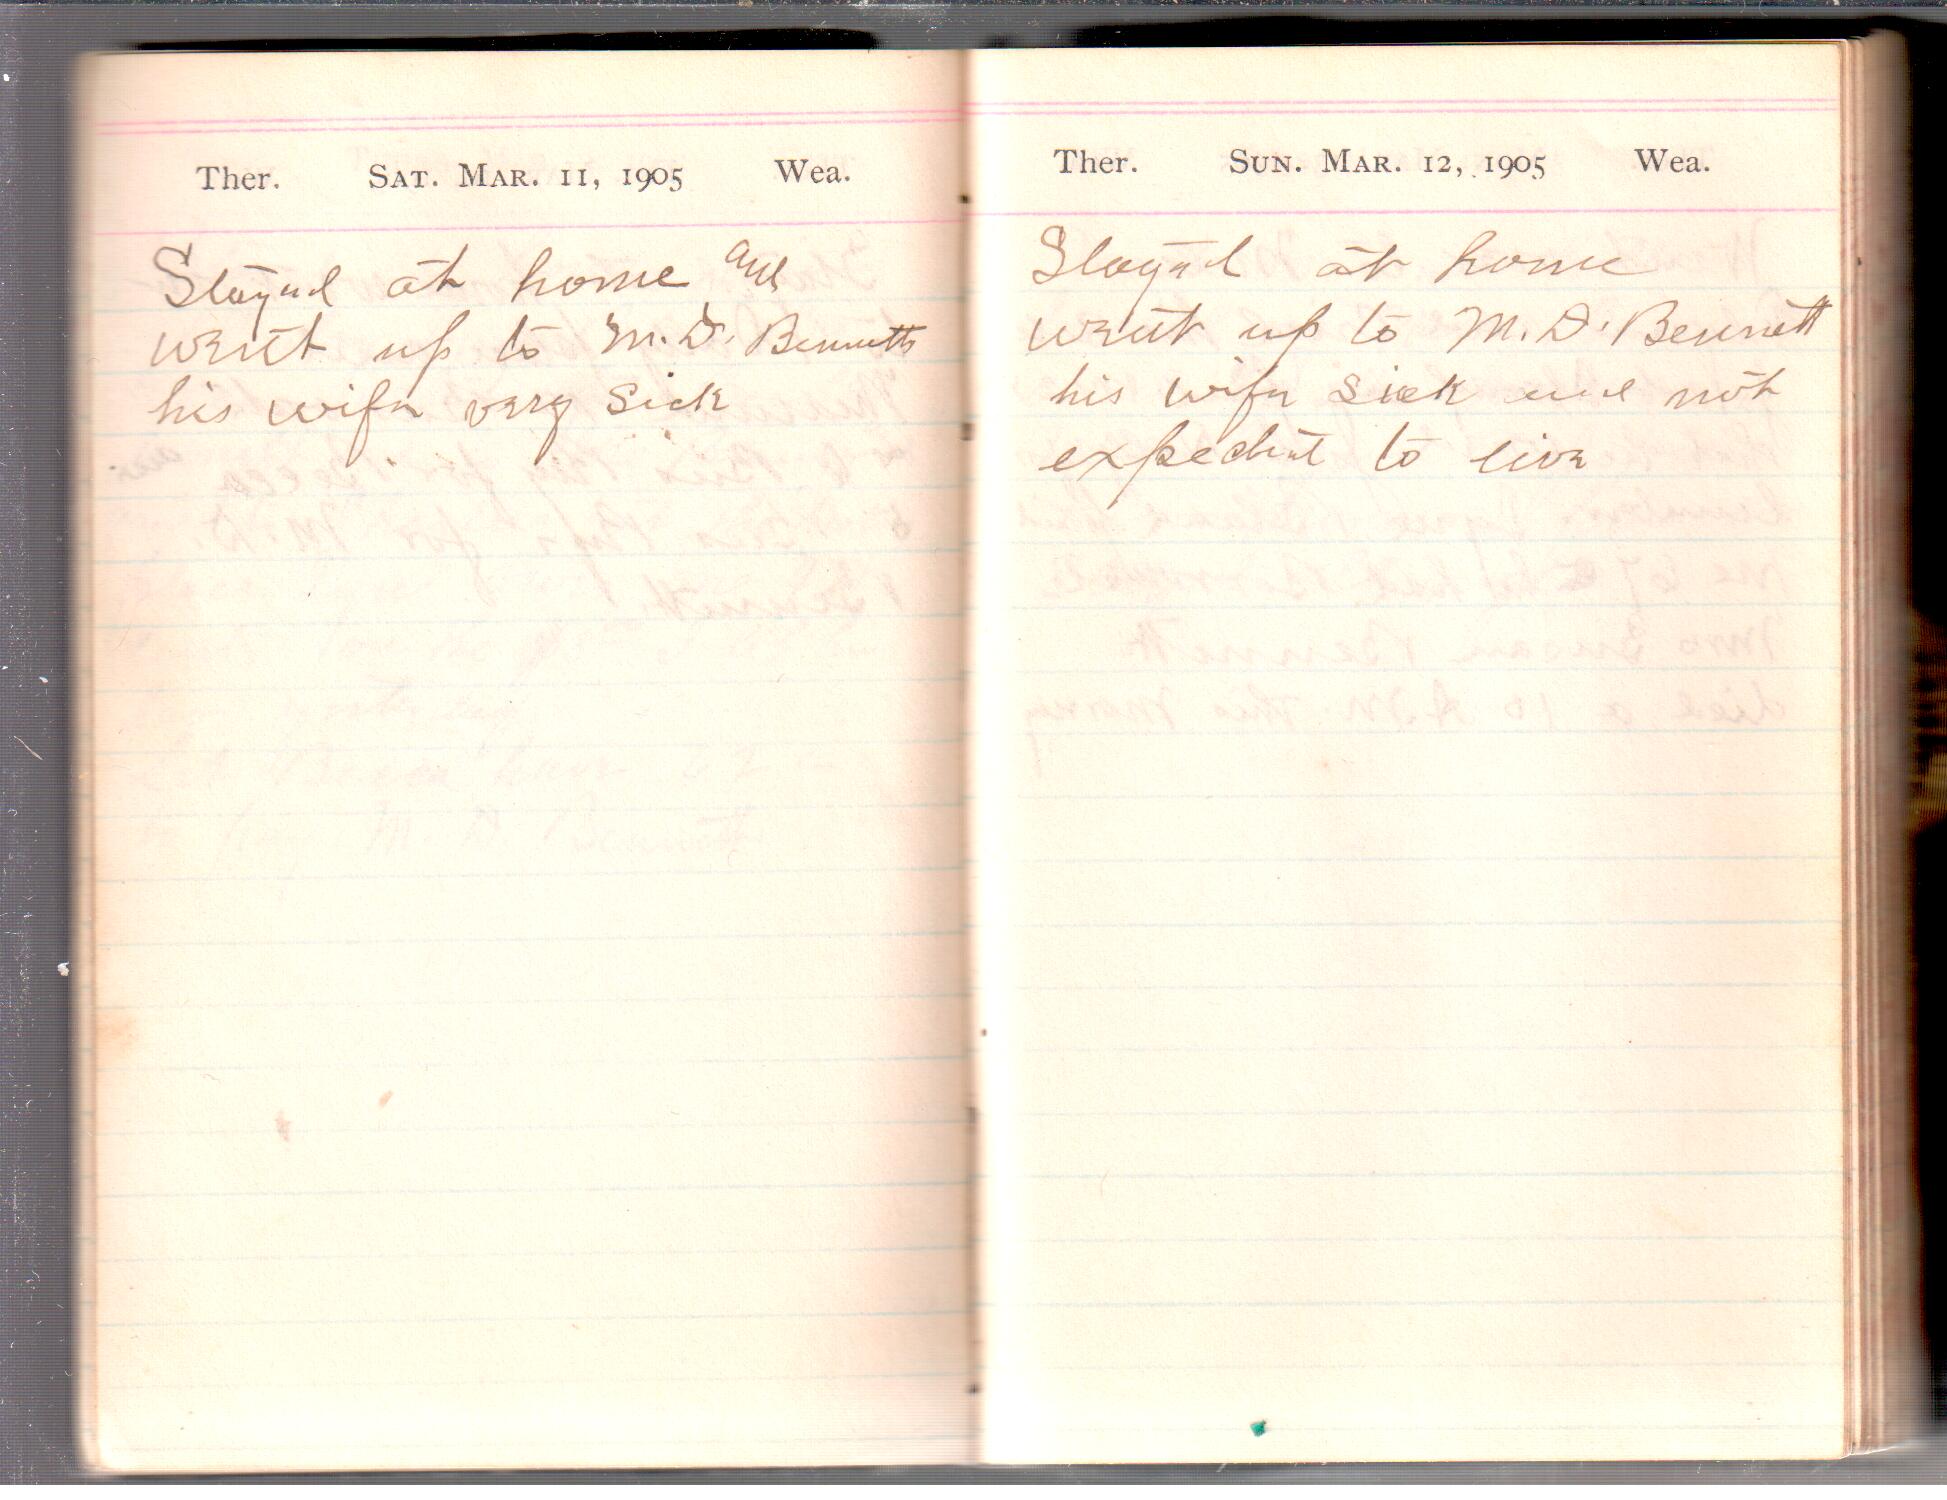 Ther. Sat. Mar. 11, 1905 Wea.
Stayed at home and
went up to M. D. Bennetts
his wife very Sick
Ther. Sun. Mar. 12, 1905 Wea.
Stayed at home
went up to M. D. Bennett
his wife Sick and not
expected to live